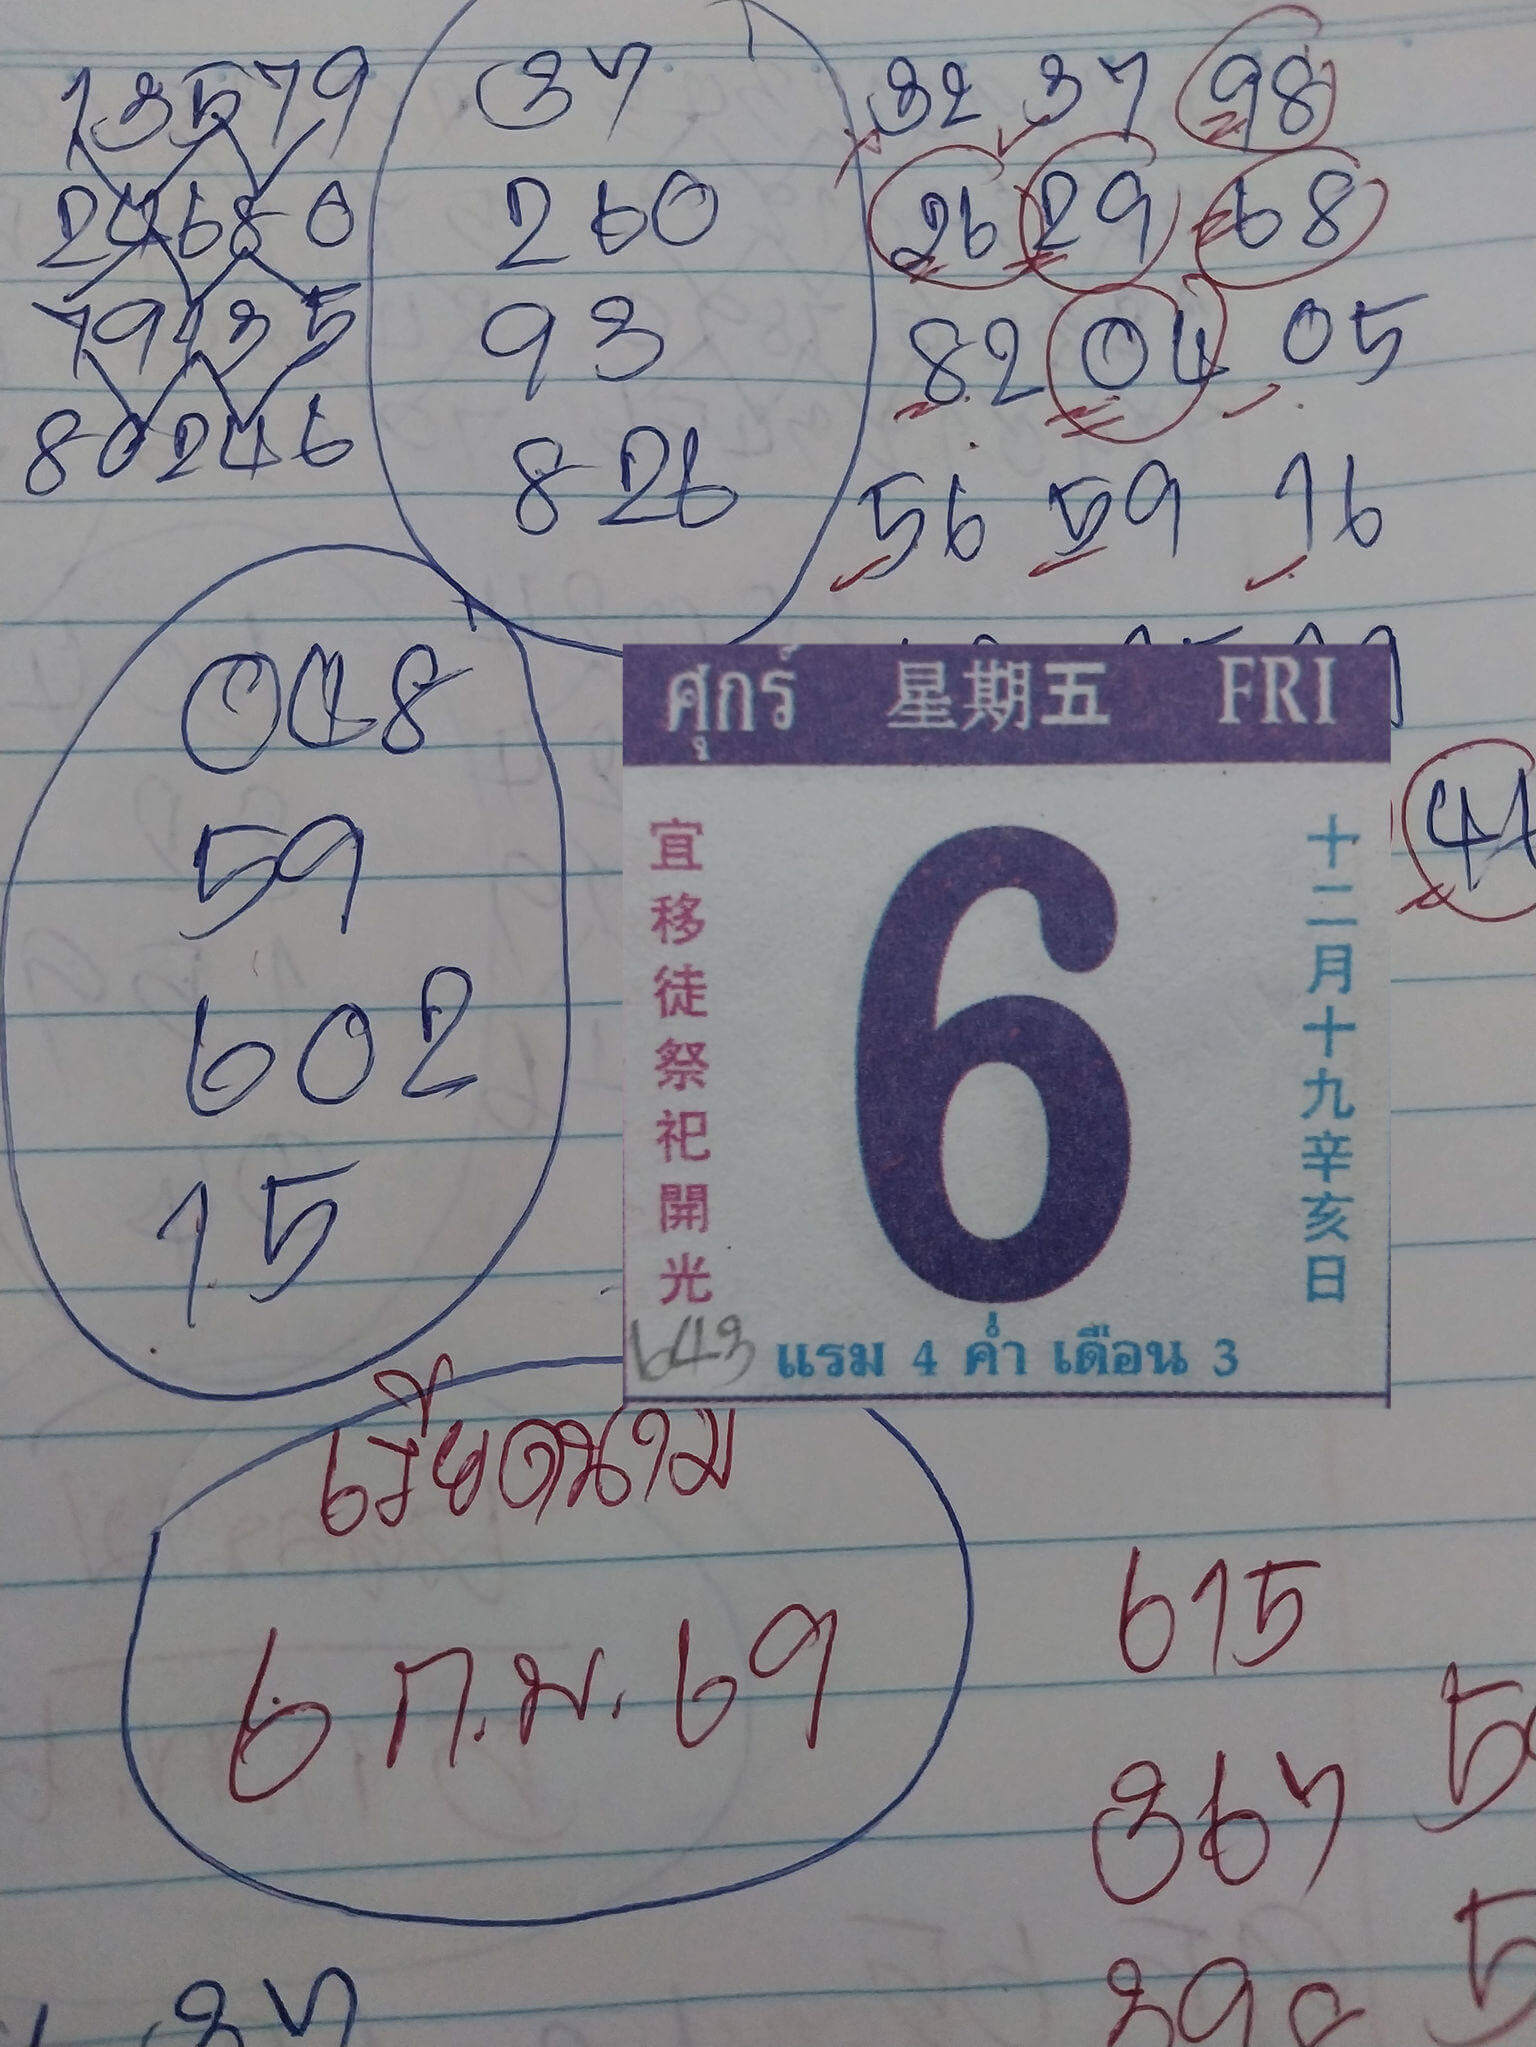 13579
24680
79135
80246
37
260
93
826
32 37 98
26 29 68
82 04 05
56 59 16
048
59
602
15
ศุกร์ 星期五 FRI
宜移徒祭祀開光
6
十二月十九辛亥日
643
แรม 4 ค่ำ เดือน 3
44
เวียดนาม
6 ก.พ. 69
615
367
37